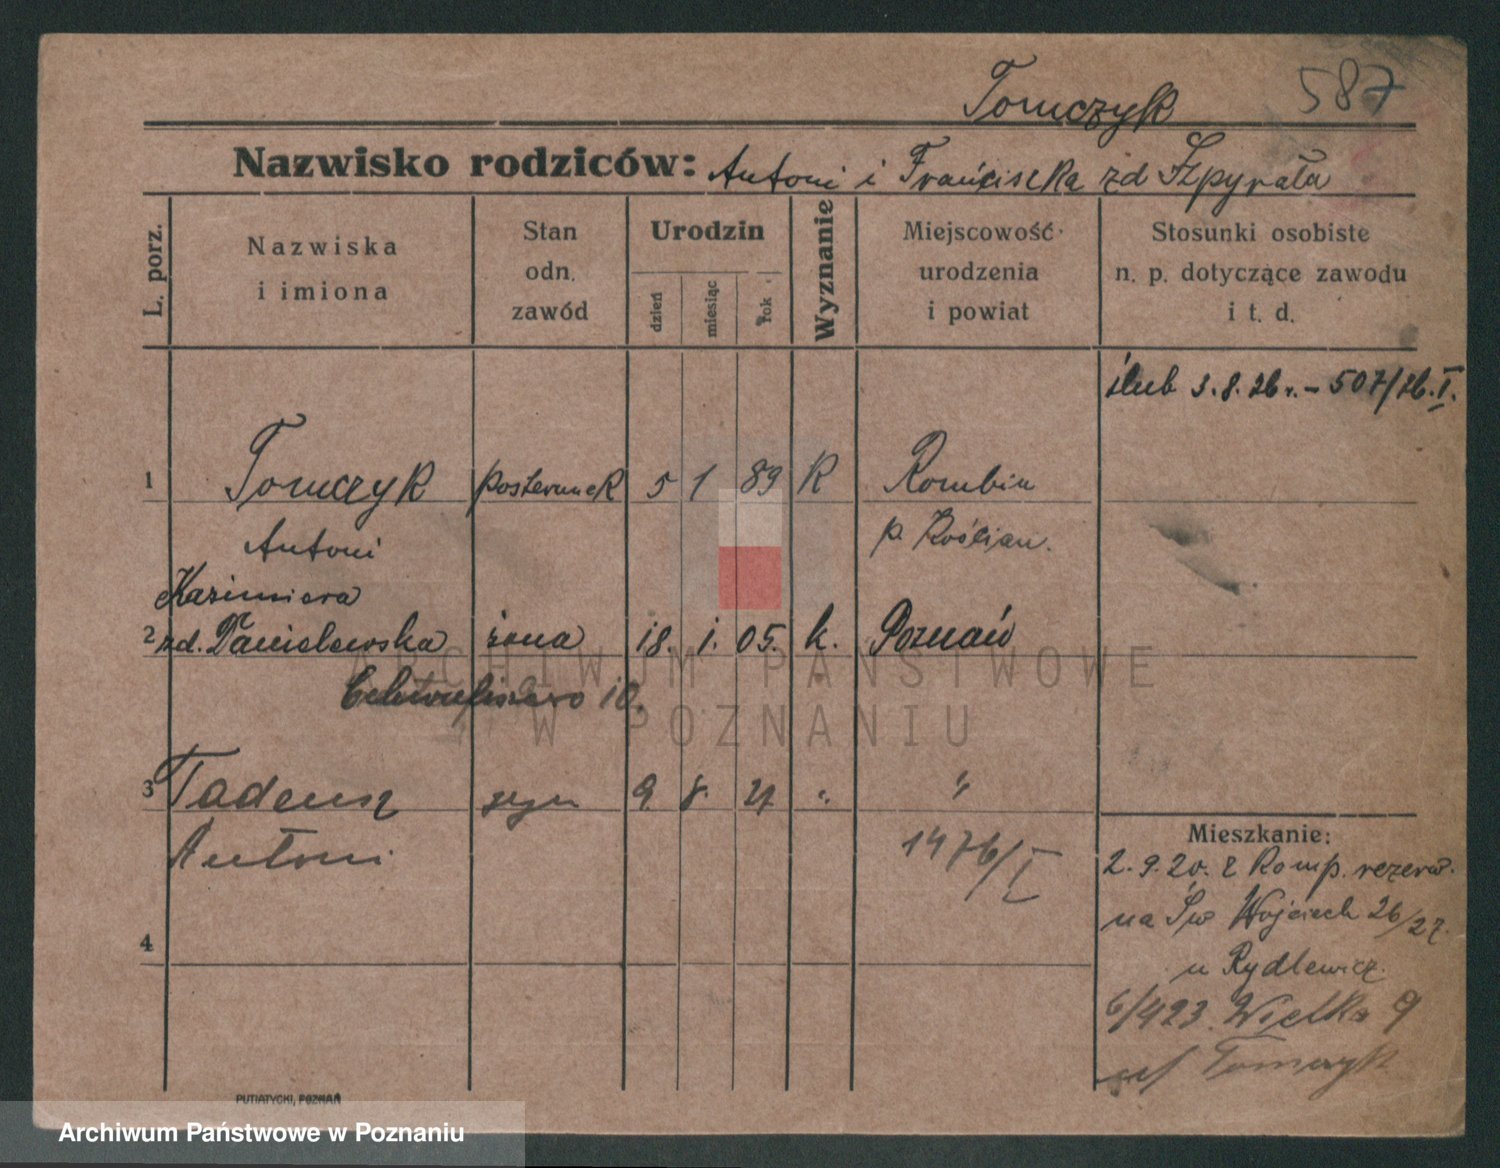 Tomczyk 587
Nazwisko rodziców: Antoni i Franciszka zd Szpyrała
L. porz.
Nazwiska
i imiona
Stan
odn.
zawód
Urodzin
dzień
miesiąc
rok
Wyznanie
Miejscowość
urodzenia
i powiat
Stosunki osobiste
n. p. dotyczące zawodu
i t. d.
ślub 3.8.26 r. – 507/26. I.
1 Tomczyk posterunek 5 1 89 k Rombin
Antoni p. Kościan.
Kazimiera
2 zd. Danielewska żona 18. 1. 05. k. Poznań
10.
3 Tadeusz syn 9. 8. 27 " "
Antoni 1476/I
4
Mieszkanie:
2.9.20. z Komp. rezerw.
na Św Wojciech 26/27.
u Rydlewicz.
6/423. Wielka 9
Tomczyk
PUTIATYCKI, POZNAŃ
ARCHIWUM PAŃSTWOWE
W POZNANIU
Archiwum Państwowe w Poznaniu